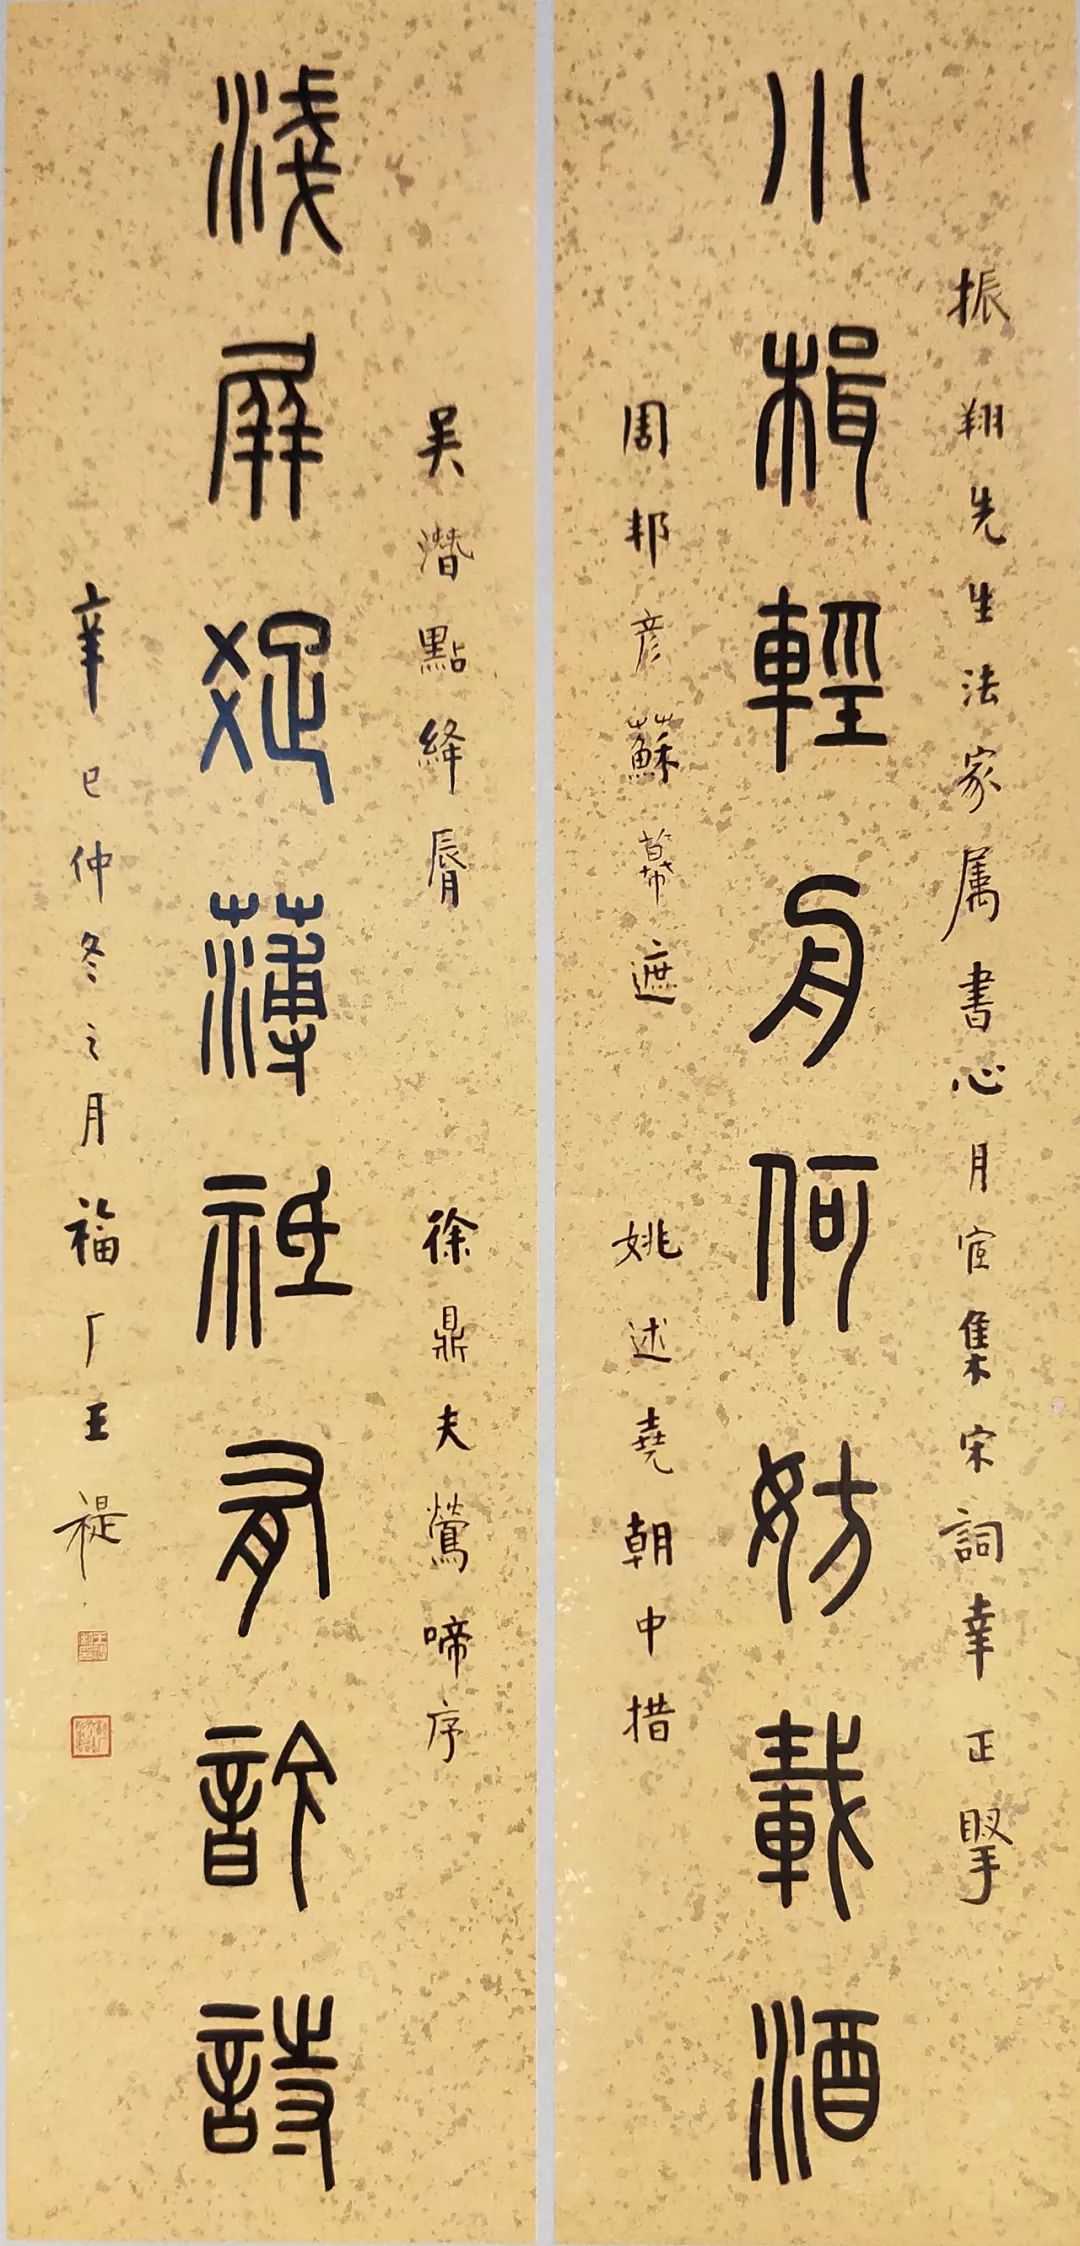 振翔先生法家属書心月宧集宋詞幸正掔
小楫輕舟何妨載酒
周邦彦蘇幕遮 姚述堯朝中措
吳潛點絳脣 徐鼎夫鶯啼序
淺屏疏薄祇有吟詩
辛巳仲冬之月福厂王禔